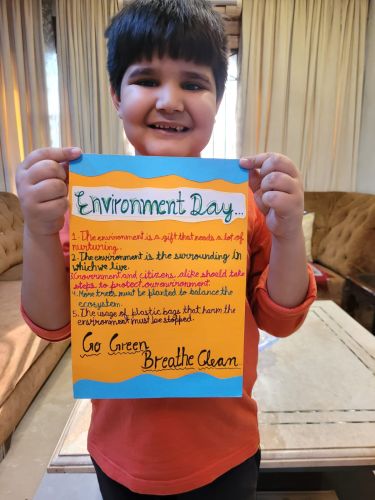 Environment Day...
1. The environment is a gift that needs a lot of
nurturing.
2. The environment is the surrounding in
which we live.
3. Government and citizens alike should take
steps to protect our environment.
4. More trees must be planted to balance the
ecosystem.
5. The usage of plastic bags that harm the
environment must be stopped.
Go Green
Breathe Clean